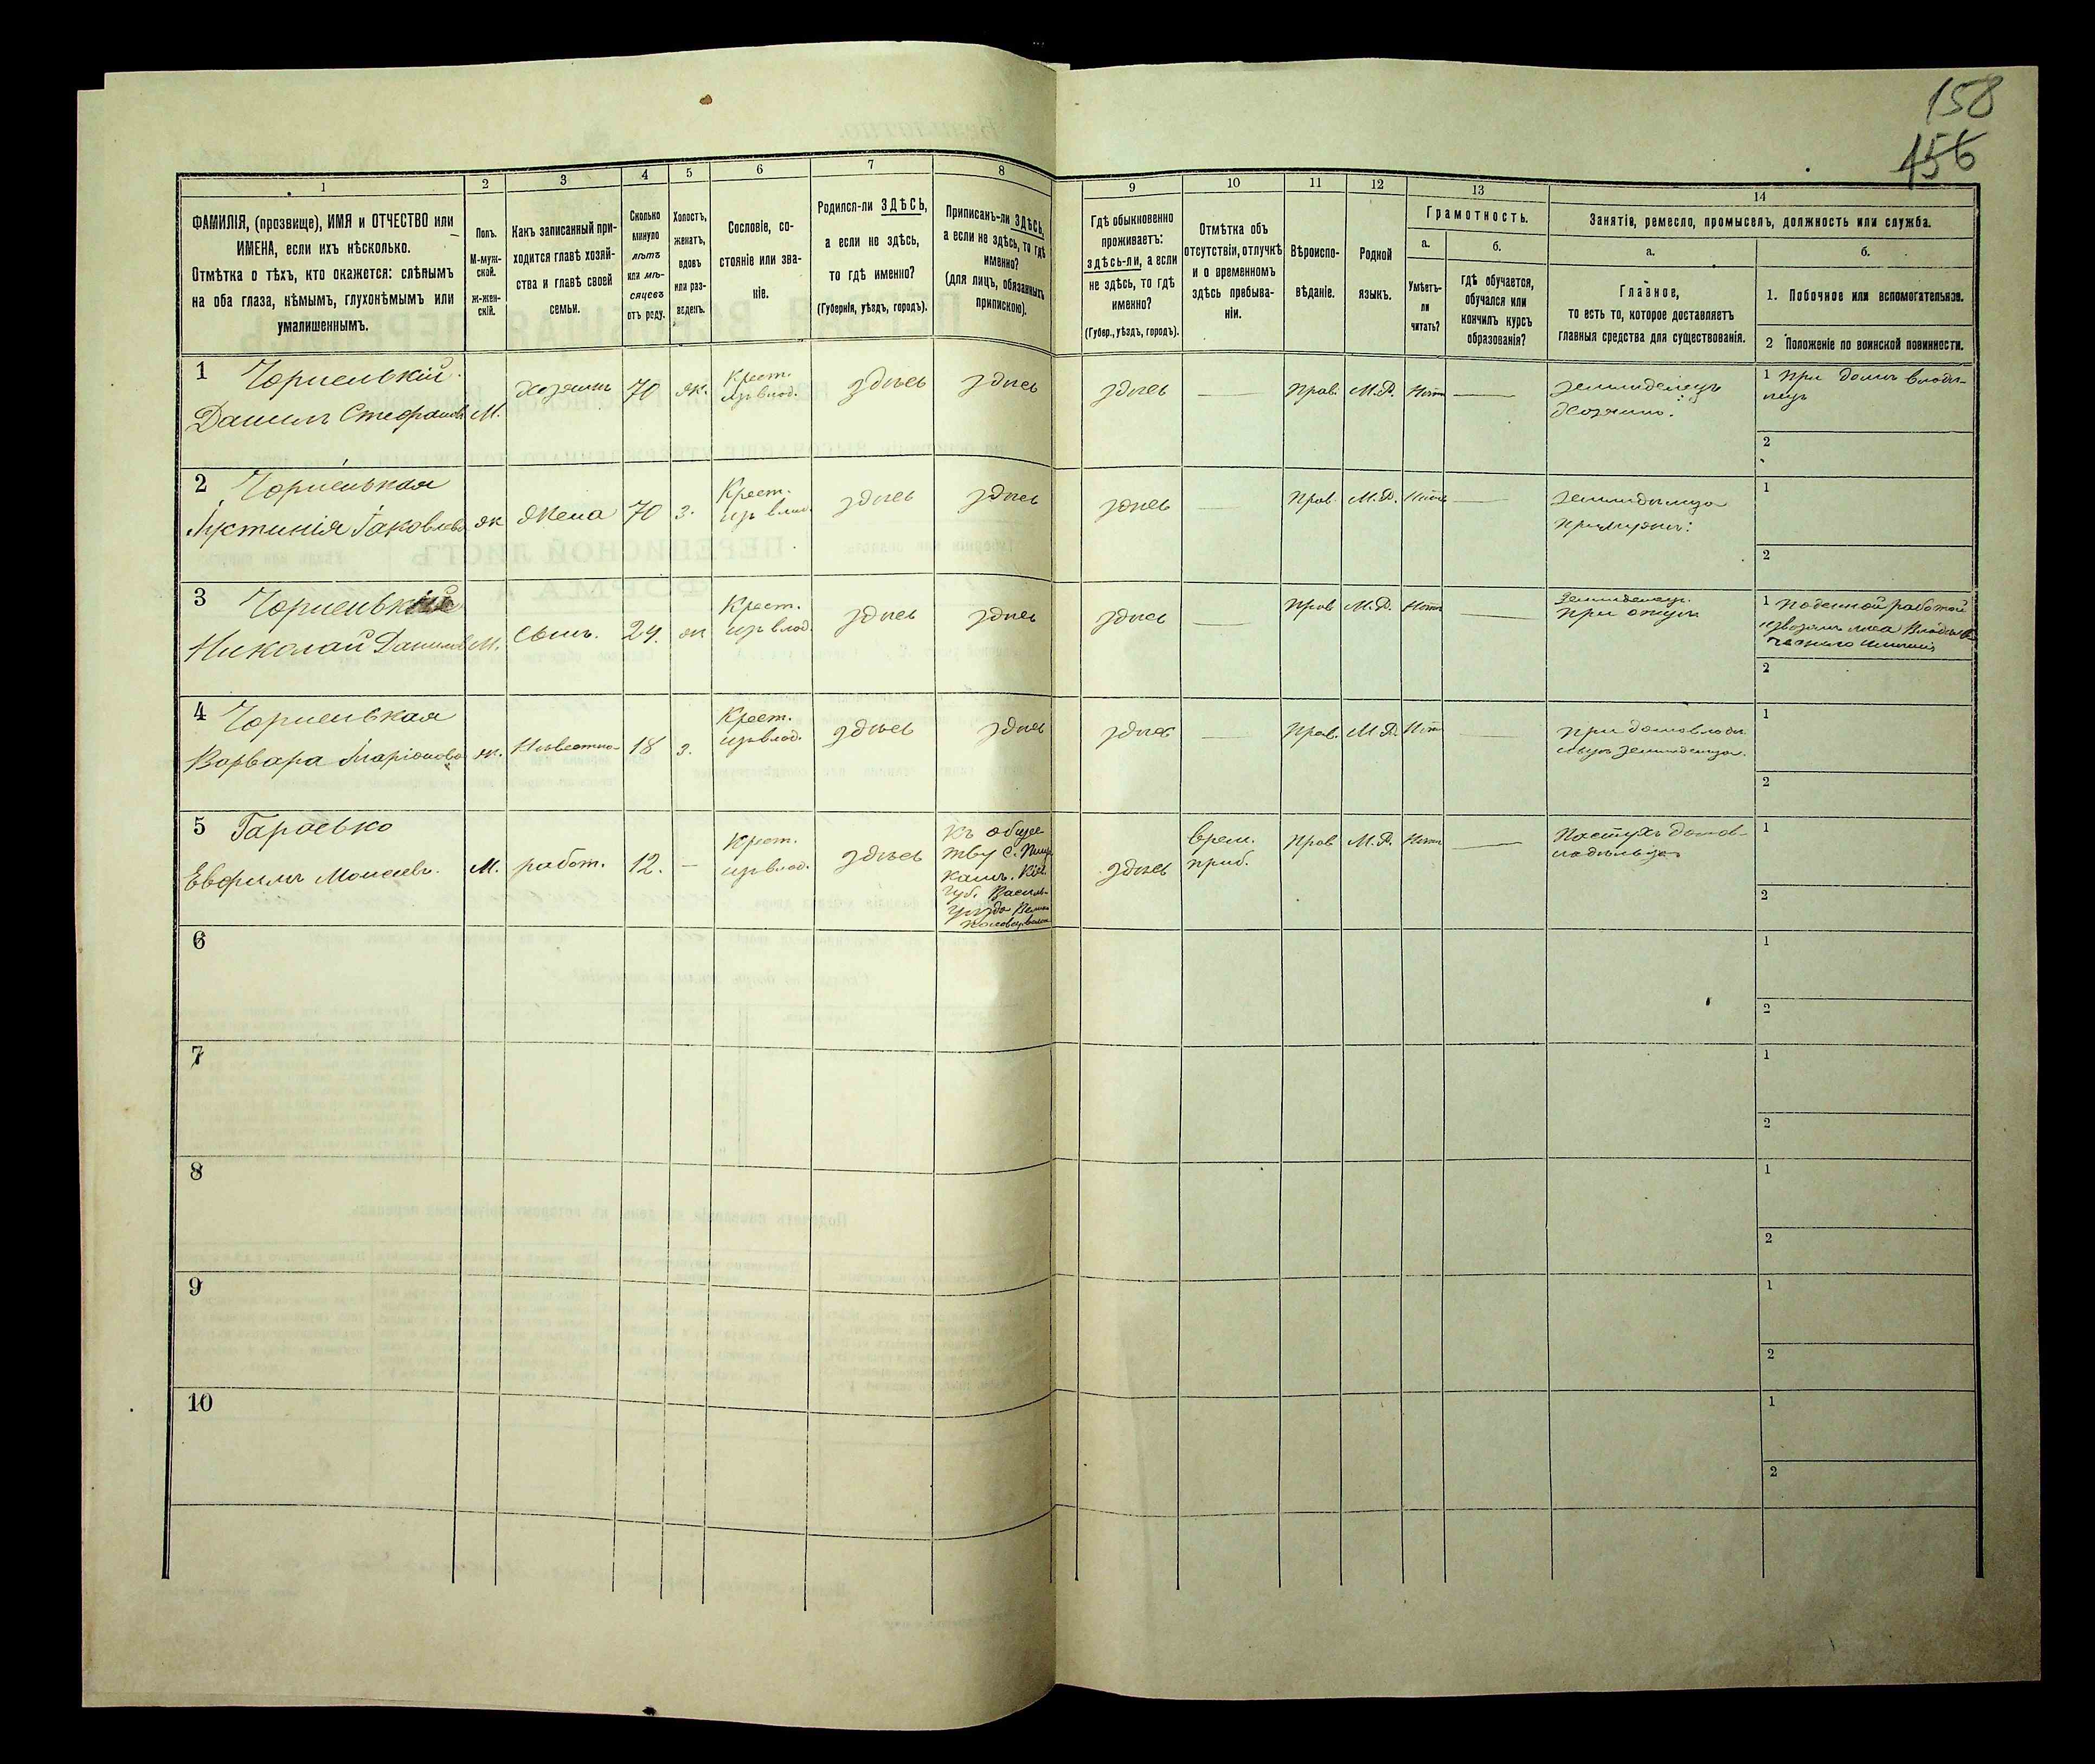 158
456
1
2
3
4
5
6
7
8
9
10
11
12
13
14
ФАМИЛІЯ, (прозвище), ИМЯ и ОТЧЕСТВО или
ИМЕНА, если ихъ нѣсколько.
Отмѣтка о тѣхъ, кто окажется: слѣпымъ
на оба глаза, нѣмымъ, глухонѣмымъ или
умалишеннымъ.
Полъ.
М-муж-
ской.
ж-жен-
скій.
Какъ записанный при-
ходится главѣ хозяй-
ства и главѣ своей
семьи.
Сколько
минуло
лѣтъ
или мѣ-
сяцевъ
отъ роду.
Холостъ,
женатъ,
вдовъ
или раз-
веденъ.
Сословіе, со-
стояніе или зва-
ніе.
Родился-ли ЗДѢСЬ,
а если не здѣсь,
то гдѣ именно?
(Губернія, уѣздъ, городъ).
Приписанъ-ли ЗДѢСЬ,
а если не здѣсь, то гдѣ
именно?
(для лицъ, обязанныхъ
припискою).
Гдѣ обыкновенно
проживаетъ:
здѣсь-ли, а если
не здѣсь, то гдѣ
именно?
(Губер., уѣздъ, городъ).
Отмѣтка объ
отсутствіи, отлучкѣ
и о временномъ
здѣсь пребыва-
ніи.
Вѣроиспо-
вѣданіе.
Родной
языкъ.
Грамотность.
а.
Умѣетъ-
ли
читать?
б.
гдѣ обучается,
обучался или
кончилъ курсъ
образованія?
Занятія, ремесло, промыселъ, должность или служба.
а.
Главное,
то есть то, которое доставляетъ
главныя средства для существованія.
б.
1. Побочное или вспомогательное.
2 Положеніе по воинской повинности.
1 Чорненькій
Данилъ Стефановъ М. Хозяинъ 70 ж. Крест. изъ влад. здѣсь здѣсь здѣсь — Прав. М.Р. Нѣтъ — Земледѣлецъ
Хозяинъ.
1 При домѣ
2
2 Чорненькая
Іустинія Іаковлева ж Жена 70 з. Крест. изъ влад. здѣсь здѣсь здѣсь — Прав. М.Р. Нѣтъ —
при мужѣ:
1
2
3 Чорненькій
Николай Данилов М. Сынъ. 24. ж Крест. изъ влад. здѣсь здѣсь здѣсь — Прав М.Р. Нѣтъ — Земледѣлецъ.
при отцѣ
1 Поденной работой
2
4 Чорненькая
Варвара Иларіонова ж. Невестка 18 з. Крест. изъ влад. здѣсь здѣсь здѣсь — Прав. М.Р. Нѣтъ —
1
2
5 Гарасько
Евфимъ Моисеев. М. работ. 12. — Крест. изъ влад. здѣсь
Къ обще-
тву с.
Губ. Василь.
уѣзда
здѣсь врем. приб. Прав М.Р. Нѣтъ — Пастухъ
1
2
6
1
2
7
1
2
8
1
2
9
1
2
10
1
2